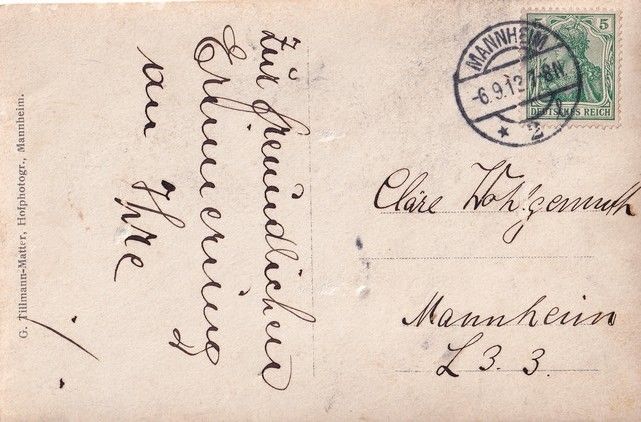 Zur freundlichen
Erinnerung
an Ihre
G. Tillmann-Matter, Hofphotogr., Mannheim.
5 5
DEUTSCHES REICH
MANNHEIM
-6.9.12.7-8N.
* 2
Cläre Wohlgemuth
Mannheim
L 3. 3.